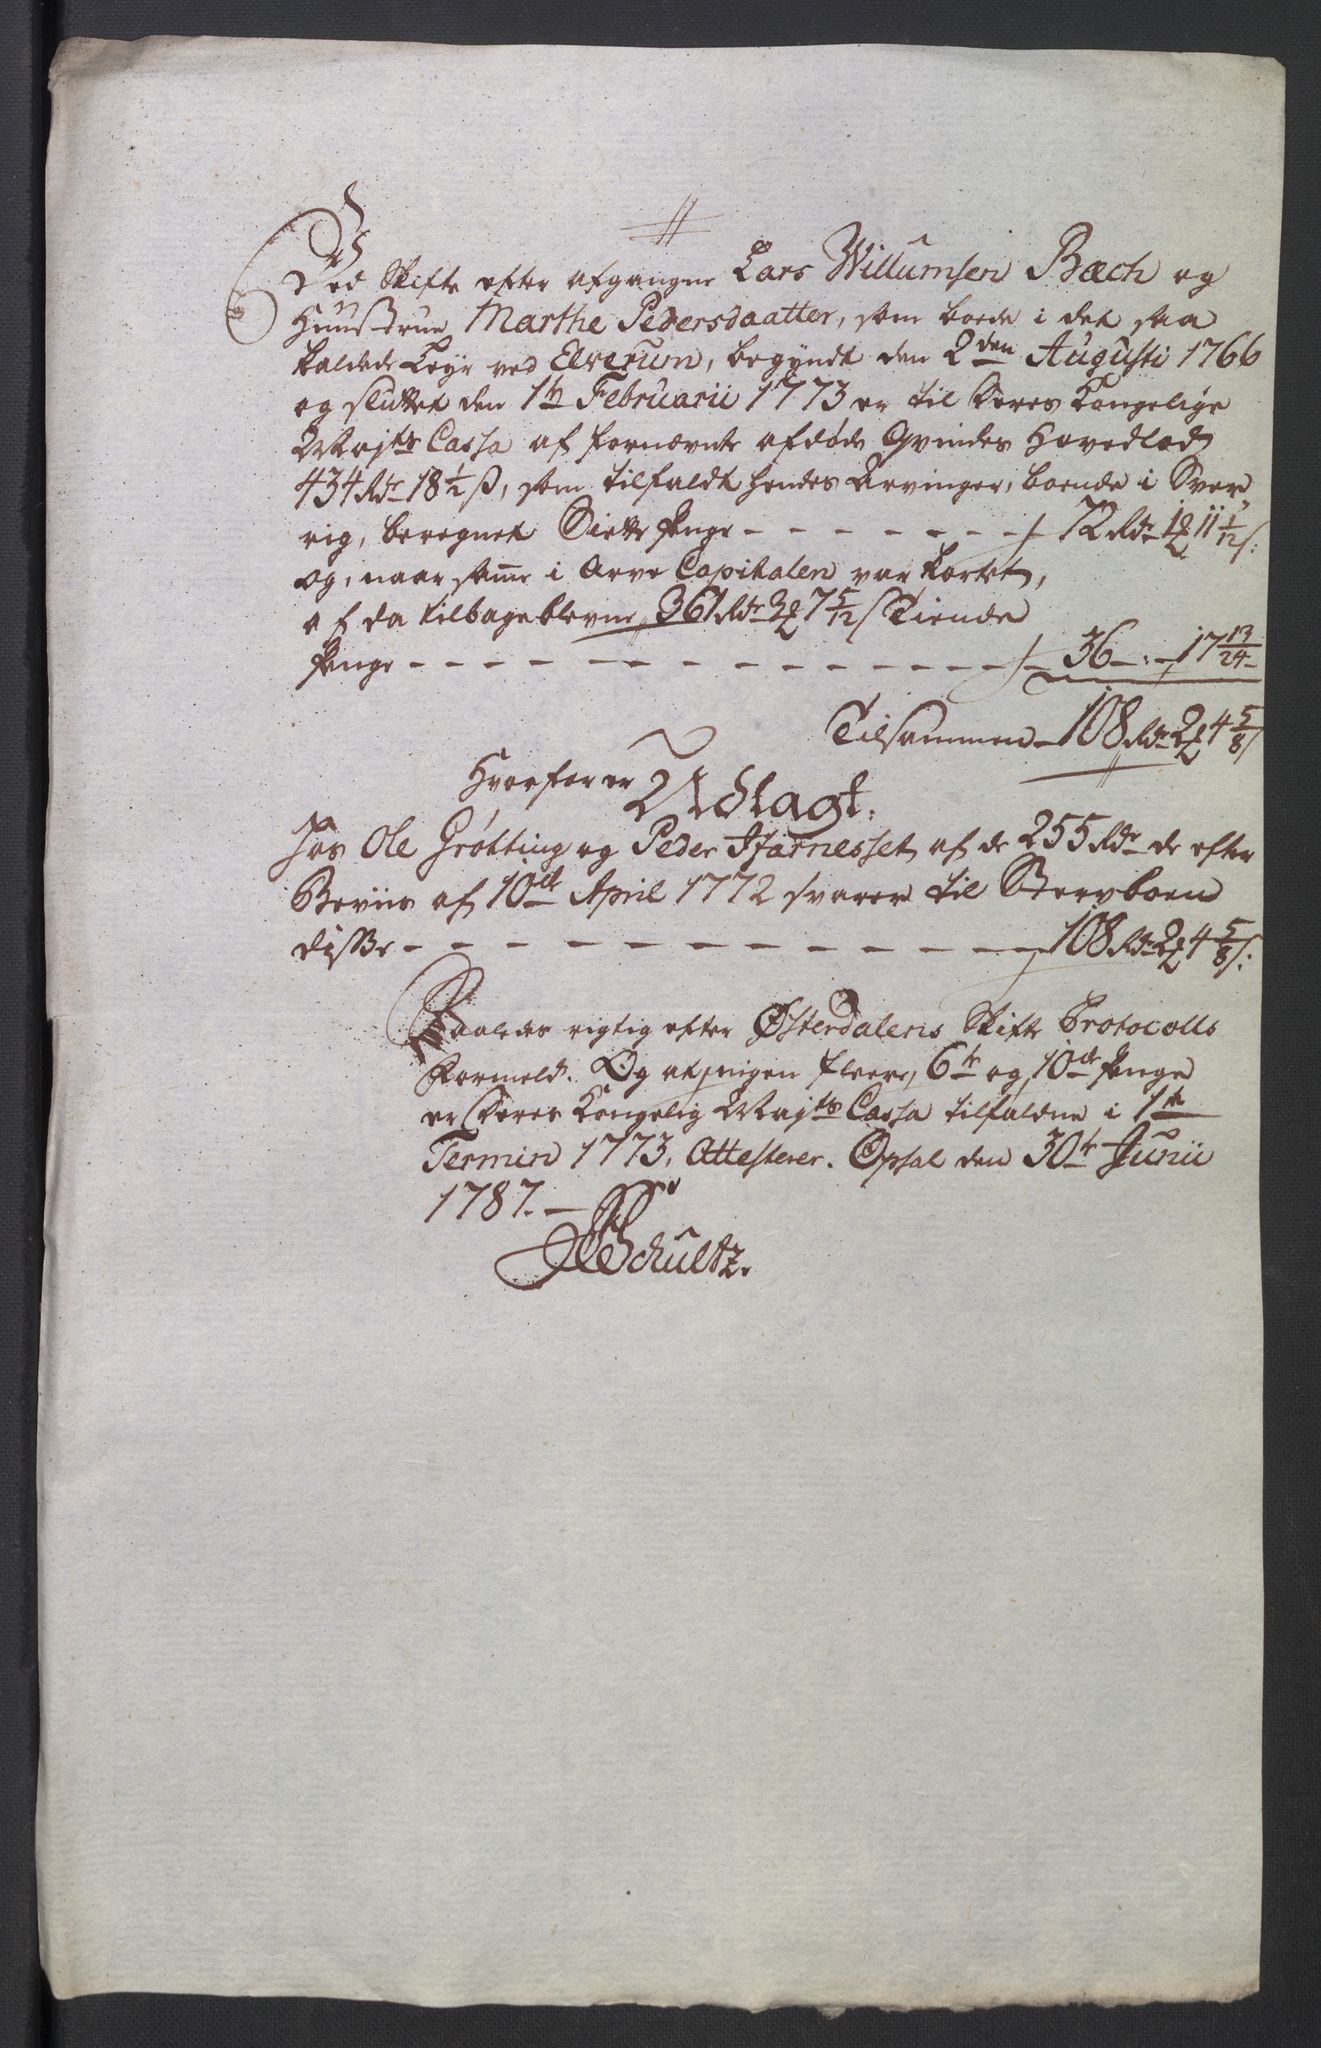 Ved Skifte efter afgangne Lars Willumsen Bæch og
Huustrue Marthe Pedersdaatter, som boede i det saa
kaldede Leyr ved Elverum, begyndt den 2den Augusti 1766
og sluttet den 1te Februarii 1773 er til Deres Kongelige
Majts Cassa af fornævnte afdøde Qvindes Hovedlod
434 Rdr 18 1/2 ß, som tilfaldt hendes Arvinger, boende i Sver„
rig, beregnet Siette Penge - - - - - - - 72 Rdr 1 ℔ 11 1/12 ß:
og, naar samme i Arve Capitalen var kortet,
af da tilbageblevne 361 Rdr 3 ℔ 7 5/12 ß Tiende
Penge - - - - - - - - - - - - - - 36 - : - 17 13/24 -
Tilsammen - 108 Rdr 2 ℔ 4 5/8 ß
Hvorfor er Udlagt.
Hos Ole Grøtting og Peder Starnesset af de 255 Rdr de efter
Beviis af 10de April 1772 svarer til Stervboen
disse - - - - - - - - - - - - - 108 Rdr 2 ℔ 4 5/8 ß:
Saaledes rigtig efter Østerdalens Skifte Protocolls
Formeld. Og at ingen fleere, 6te og 10de Penge
er Deres Kongelig Majts Cassa tilfaldne i 1te
Termin 1773, Attesterer. Opsal den 30te Junii
1787. -
Schultz.